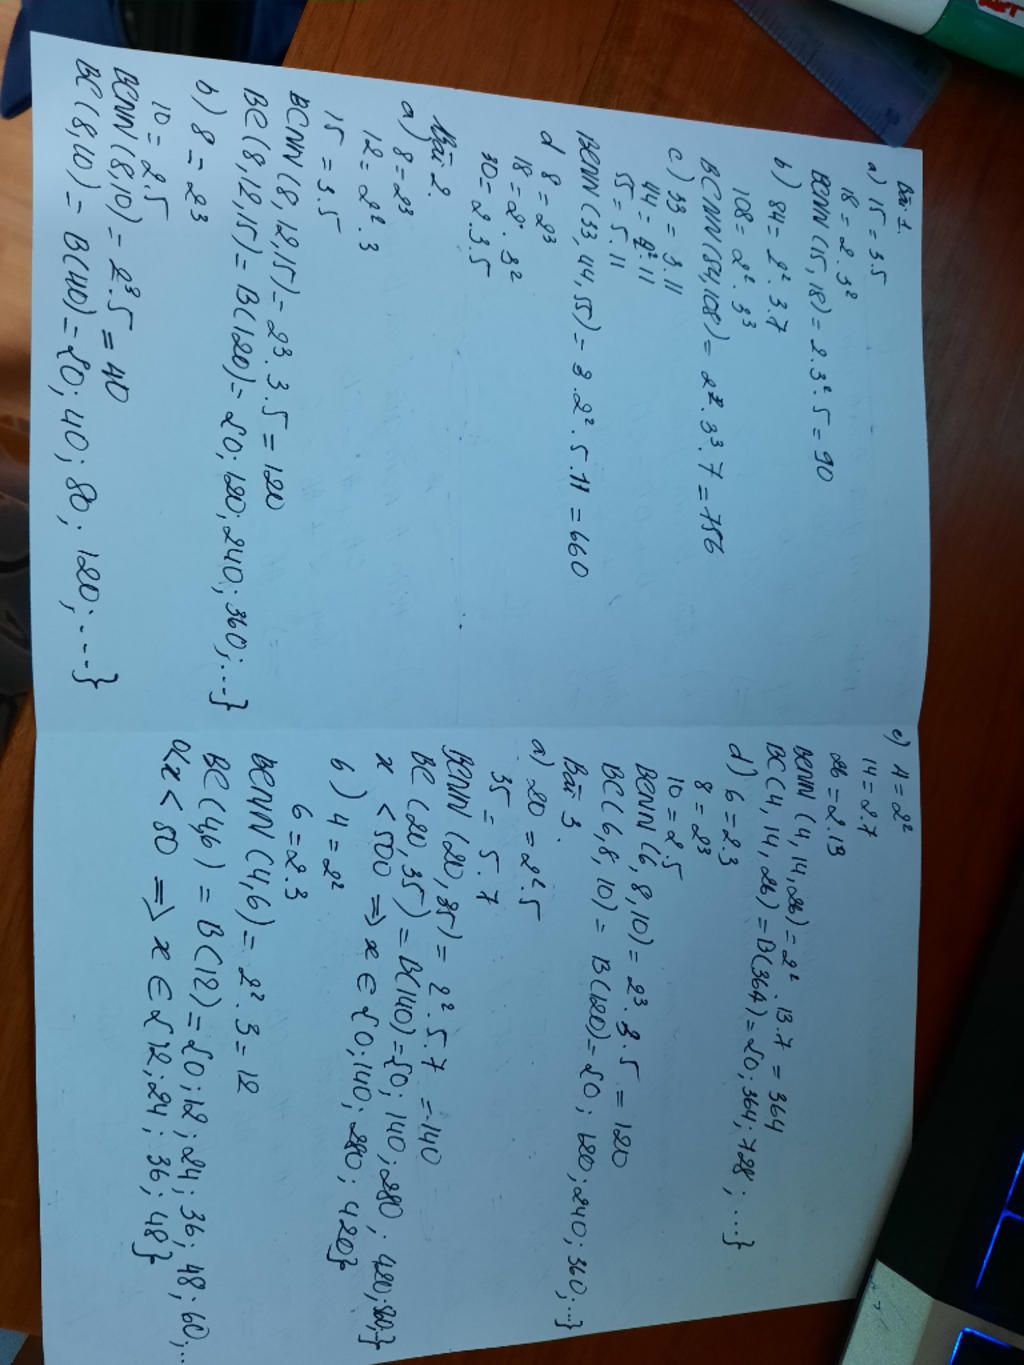 Bài 1.
a) 15 = 3.5
18 = 2.3²
BCNN (15,18) = 2.3².5 = 90
b) 84 = 2².3.7
108 = 2².3³
BCNN (84,108) = 2².3³.7 = 756
c) 33 = 3.11
44 = 2².11
55 = 5.11
BCNN (33,44,55) = 3.2².5.11 = 660
d 8 = 2³
18 = 2.3²
30 = 2.3.5
Bài 2.
a) 8 = 2³
12 = 2².3
15 = 3.5
BCNN (8,12,15) = 2³.3.5 = 120
BC (8,12,15) = B(120) = {0; 120; 240; 360; ...}
b) 8 = 2³
10 = 2.5
BCNN (8,10) = 2³.5 = 40
BC (8,10) = B(40) = {0; 40; 80; 120; ...}
c) 4 = 2²
14 = 2.7
26 = 2.13
BCNN (4,14,26) = 2².13.7 = 364
BC (4,14,26) = B(364) = {0; 364; 728; ...}
d) 6 = 2.3
8 = 2³
10 = 2.5
BCNN (6,8,10) = 2³.3.5 = 120
BC (6,8,10) = B(120) = {0; 120; 240; 360; ...}
Bài 3.
a) 20 = 2².5
35 = 5.7
BCNN (20,35) = 2².5.7 = 140
BC (20,35) = B(140) = {0; 140; 280; 420; 560;}
x < 500 => x ∈ {0; 140; 280; 420}
b) 4 = 2²
6 = 2.3
BCNN (4,6) = 2².3 = 12
BC (4,6) = B(12) = {0; 12; 24; 36; 48; 60; ...
0<x < 50 => x ∈ {12; 24; 36; 48}